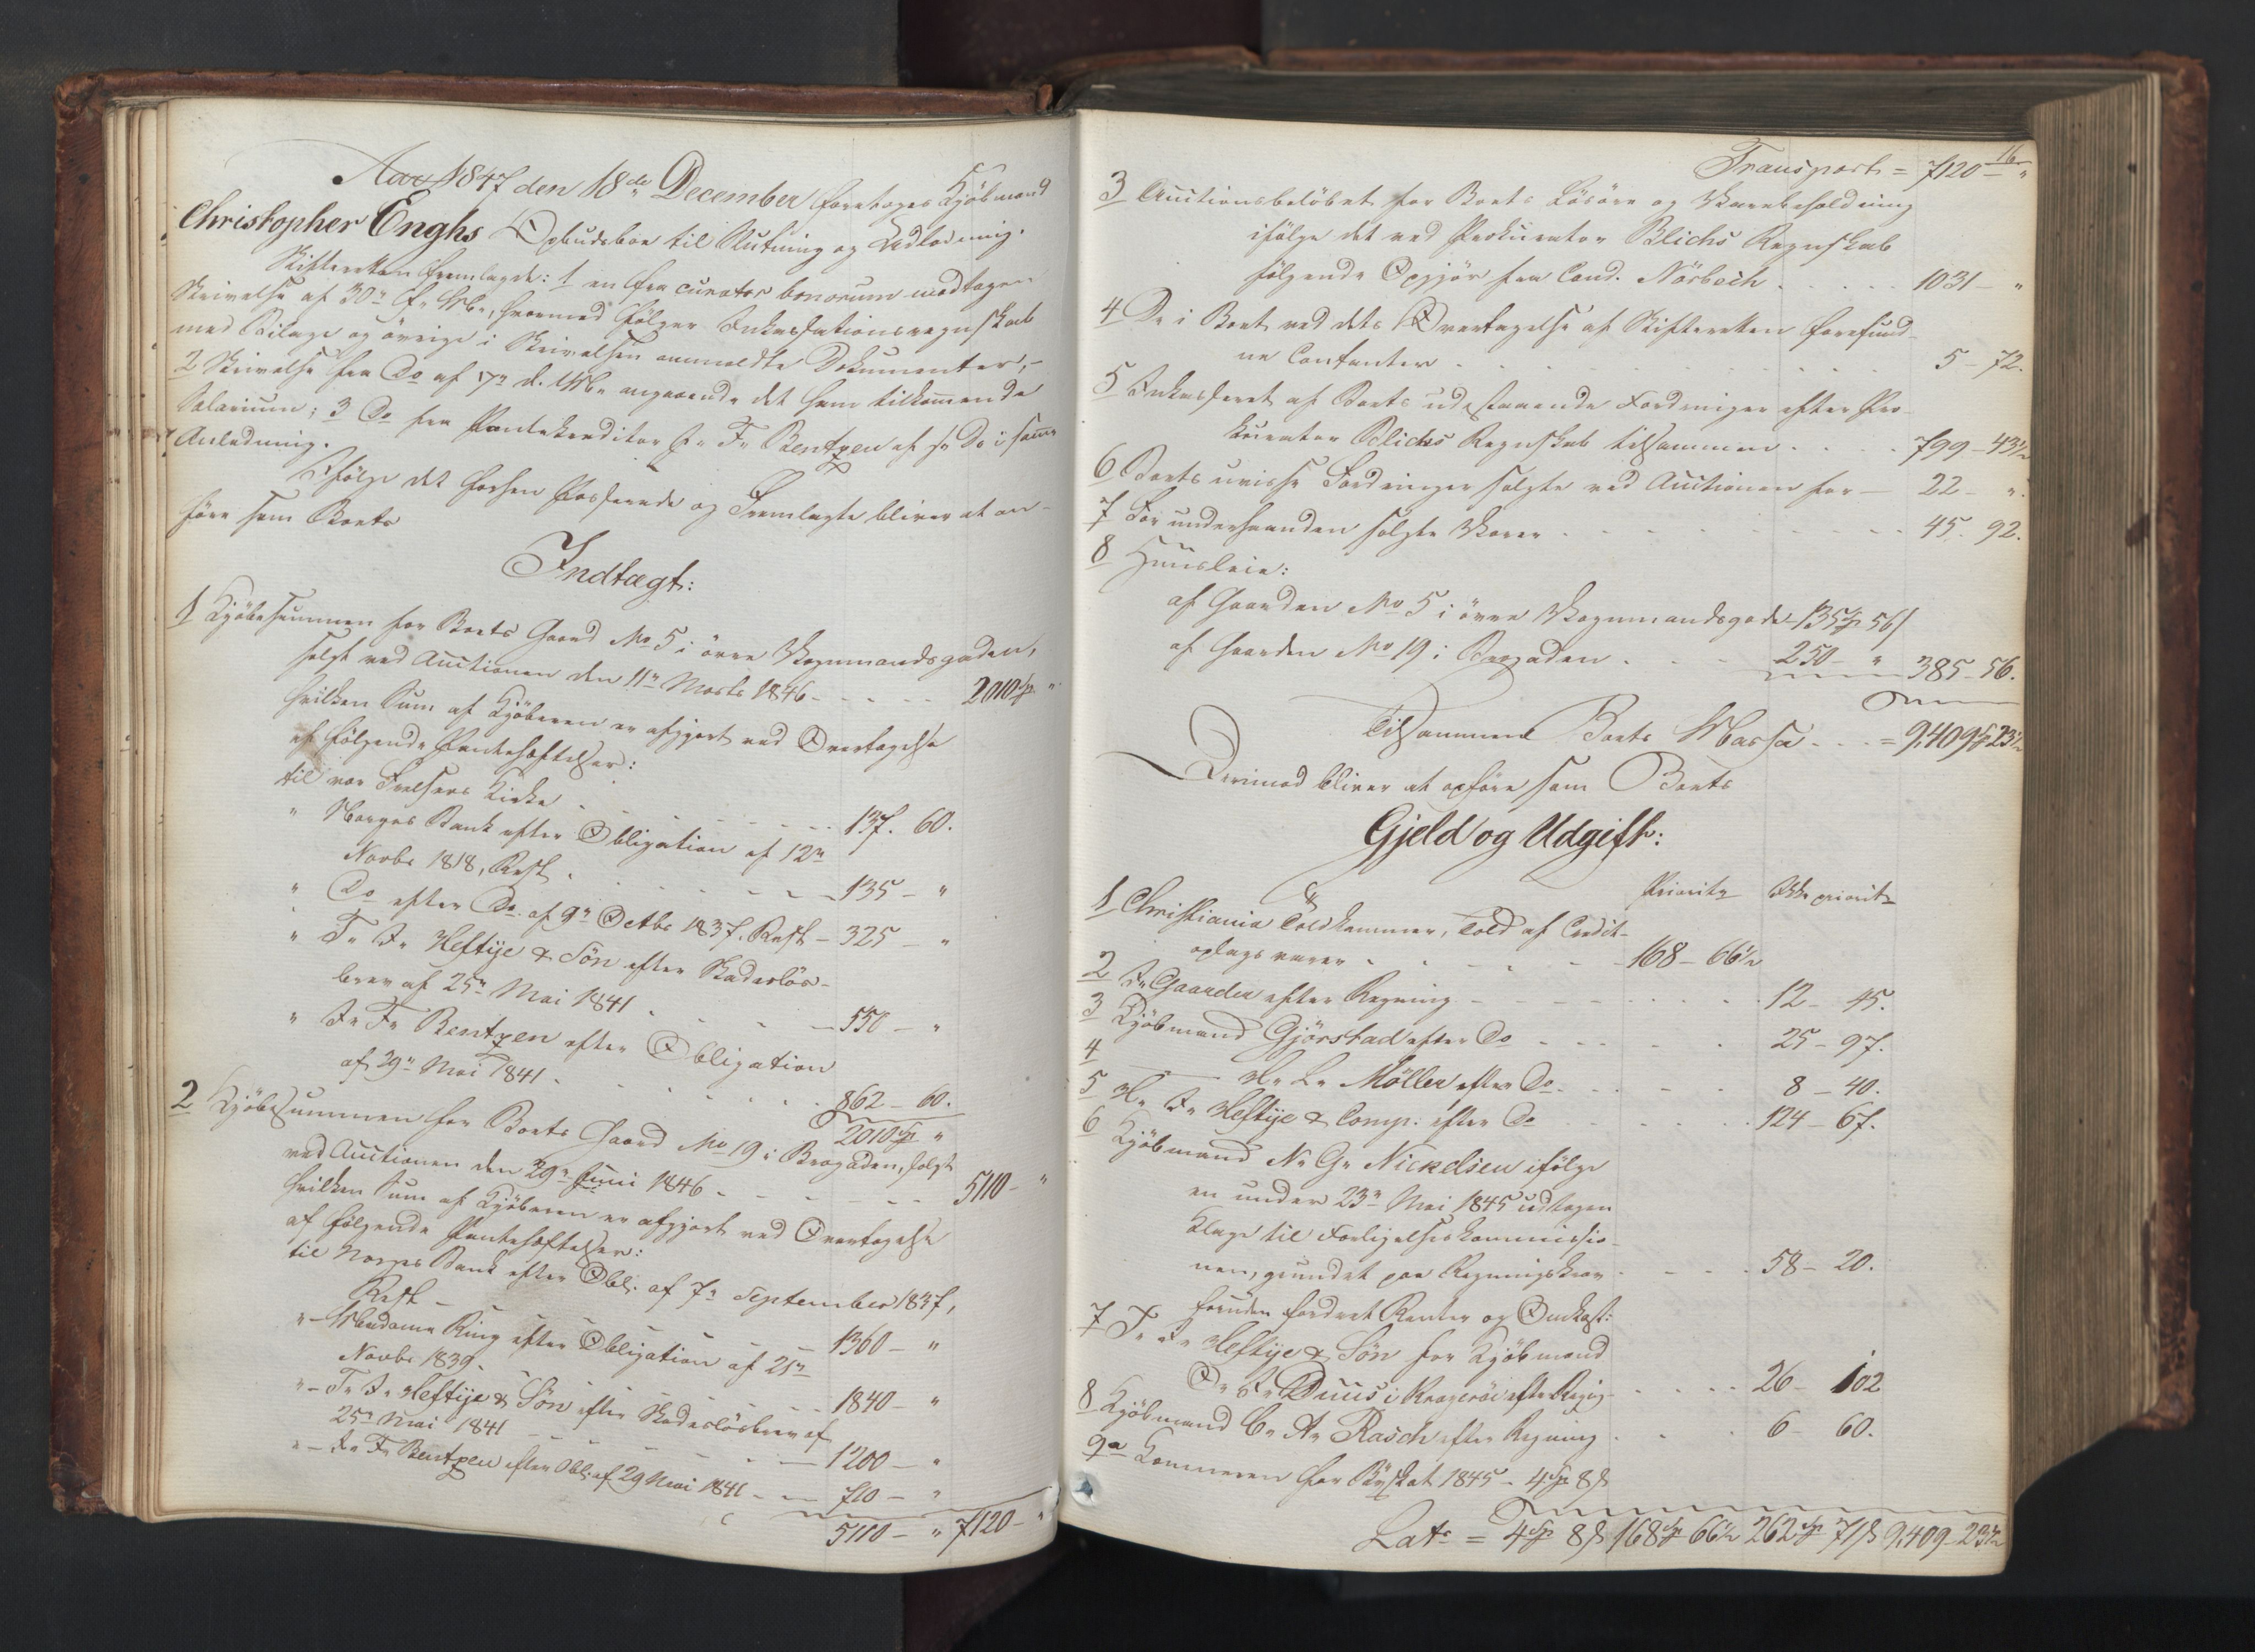 Aar 1847 den 18de December foretoges Kjøbmand
Christopher Enghs Opbudsboe til Slutning og Udlodning.
Skifteretten fremlagde: 1 en fra curator bonorum modtagen
Skrivelse af 30te f. M., hvormed følger Inkassationsregnskab
med Bilage og øvrige i Skrivelsen anmeldte Dokumenter,
2 Skrivelse fra Do af 17de d. M. angaaende det ham tilkommende
Salarium; 3 Do fra Pantekreditor J. F. Bentzen af s. D. i samme
Anledning.
Ifølge det forhen Passerede og Fremlagte bliver at an-
føre som Boets
Indtægt:
1 Kjøbesummen for Boets Gaard No 5 i øvre Vognmandsgaden,
solgt ved Auctionen den 11te Marts 1846 - - - 2010 Sp "
hvilken Sum af Kjøberen er afgjort ved Overtagelse
af følgende Pantehæftelser:
til vor Frelsers Kirke . . . 137. 60.
" Norges Bank efter Obligation af 12te
Novbr 1818, Rest . . . 135 - "
" Do efter Do af 9de Octbr 1837. Rest - 325 - "
" T. J. Heftije & Søn efter Skadesløs-
brev af 25de Mai 1841 . . . 550 - "
" J. F. Bentzen efter Obligation
af 29de Mai 1841 . . . 862 - 60.
2010 Sp "
2 Kjøbesummen for Boets Gaard No 19 i Brogaden, solgt
ved Auctionen den 29de Juni 1846 - - - 5110 - "
hvilken Sum af Kjøberen er afgjort ved Overtagelse
af følgende Pantehæftelser:
til Norges Bank efter Obl. af 7de September 1837,
Rest - - - 1360 - "
" - Madame Ring efter Obligation af 21de
Novbr 1839. - - - 1840 - "
" - T. J. Heftije & Søn efter Skadesløsbrev af
25de Mai 1841 - - - 1200 - "
" - J. F. Bentzen efter Obl. af 29 Mai 1841 - - 710 - "
5110 - " 7120 - "
16
Transport = 7120 - "
3 Auctionsbeløbet for Boets Løsøre og Varebeholdning
ifølge det ved Prokurator Blichs Regnskab
følgende Opgjør fra Cand. Nørbech . . . 1031 - "
4 De i Boet ved dets Overtagelse af Skifteretten forefund-
ne Contanter . . . 5 - 72.
5 Inkasseret af Boets udestaaende Fordringer efter Pro-
kurator Blichs Regnskab tilsammen . . . 799 - 43½
6 Boets uvisse Fordringer solgte ved Auctionen for - 22 - "
7 For underhaanden solgte Varer . . . 45. 92.
8 Huusleie:
af Gaarden No 5 i øvre Vognmandsgade 135 Sp 56
af Gaarden No 19 i Brogaden . . . 250 - " 385 - 56.
Tilsammen Boets Massa . . . = 9,409 Sp 23½
Derimod bliver at opføre som Boets
Gjeld og Udgift:
Priorit. Ikke priorit.
1 Christiania Toldkammer, Told af Credit-
oplagsvarer - - - 168 - 66½
2 J. Gaarder efter Regning - - - 12 - 45.
3 Kjøbmand Gjørstad efter Do - - - 25 - 97.
4 — H. L. Møller efter Do - - - 8 - 40.
5 H. J. Heftije & Comp. efter Do - - - 124 - 67.
6 Kjøbmand N. G. Nickelsen ifølge
en under 23de Mai 1845 udtagen
Klage til Forligelseskommissio-
nen, grundet paa Regningskrav . . . 58 - 20.
foruden fordret Renter og Omkost:
7 T. J. Heftije & Søn for Kjøbmand
D. F. Duus i Kragerøe efter Regng. . . . 26 - 102
8 Kjøbmand C. A. Rasch efter Regning . . . 6 - 60.
9a Kæmneren for Byskat 1845 - 4 Sp 8 ß
Lats = 4 Sp 8 ß 168 Sp 66½ 262 Sp 71 ß 9,409 - 23½